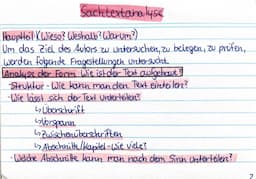 Sachtextanalyse
Hauptteil (Wieso? Weshalb? Warum?)
Um das Ziel des Autors zu untersuchen, zu belegen, zu prüfen,
werden folgende Fragestellungen untersucht.
Analyse der Form: Wie ist der Text aufgebaut?
·Struktur - Wie kann man den Text einteilen?
·Wie lässt sich der Text unterteilen?
↳ Überschrift
↳ Vorspann
↳ Zwischenüberschriften
↳ Abschnitte/Kapitel - Wie viele?
·Welche Abschnitte kann man nach dem Sinn unterteilen?
2